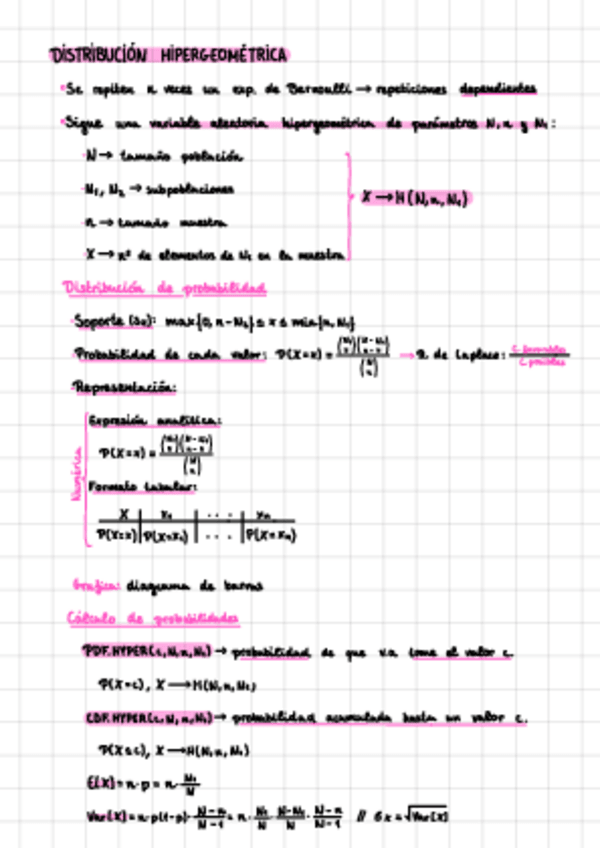 DISTRIBUCIÓN HIPERGEOMÉTRICA
Se repiten n veces un exp. de Bernoulli → repeticiones dependientes
Sigue una variable aleatoria hipergeométrica de parámetros N, n y N₁:
N → tamaño población
N₁, N₂ → subpoblaciones
n → tamaño muestra
X → nº de elementos de N₁ en la muestra
X → H(N, n, N₁)
Distribución de probabilidad
Soporte (Sx): max{0, n-N₂} ≤ x ≤ min{n, N₁}
Probabilidad de cada valor: P(X=x) = (N₁ x)(N-N₁ n-x) / (N n) → R. de Laplace: C. favorables / C. posibles
Representación:
Numérica
Expresión analítica:
P(X=x) = (N₁ x)(N-N₁ n-x) / (N n)
Formato tabular:
X | x₁ | ... | xₙ
P(X=x) | P(X=x₁) | ... | P(X=xₙ)
Gráfica: diagrama de barras
Cálculo de probabilidades
PDF.HYPER(c, N, n, N₁) → probabilidad de que v.a. tome el valor c.
P(X=c), X → H(N, n, N₁)
CDF.HYPER(c, N, n, N₁) → probabilidad acumulada hasta un valor c.
P(X≤c), X → H(N, n, N₁)
E(X) = n·p = n· N₁/N
Var(X) = n·p(1-p)· N-n/N-1 = n· N₁/N · N-N₁/N · N-n/N-1 // σx = √Var(X)